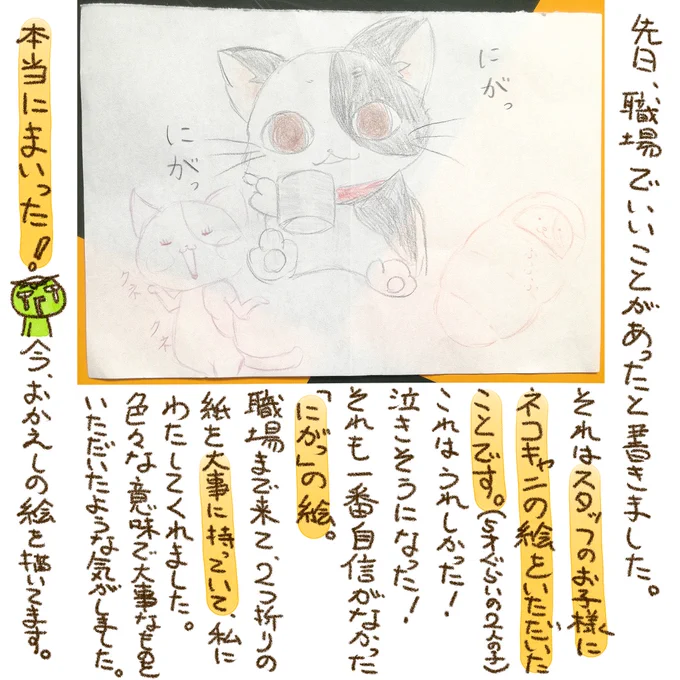 先日、職場でいいことがあったと書きました。
それはスタッフのお子様に
ネコキャニの絵をいただいた
ことです。(5才ぐらいの2人の子)
これはうれしかった!
泣きそうになった!
それも一番自信がなかった
「にがっ」の絵。
職場まで来て、2つ折りの
紙を大事に持っていて、私に
わたしてくれました。
色々な意味で大事なものを
いただいたような気がしました。
本当にまいった!
今、おかえしの絵を描いてます。
にがっ
にがっ
クネ
クネ